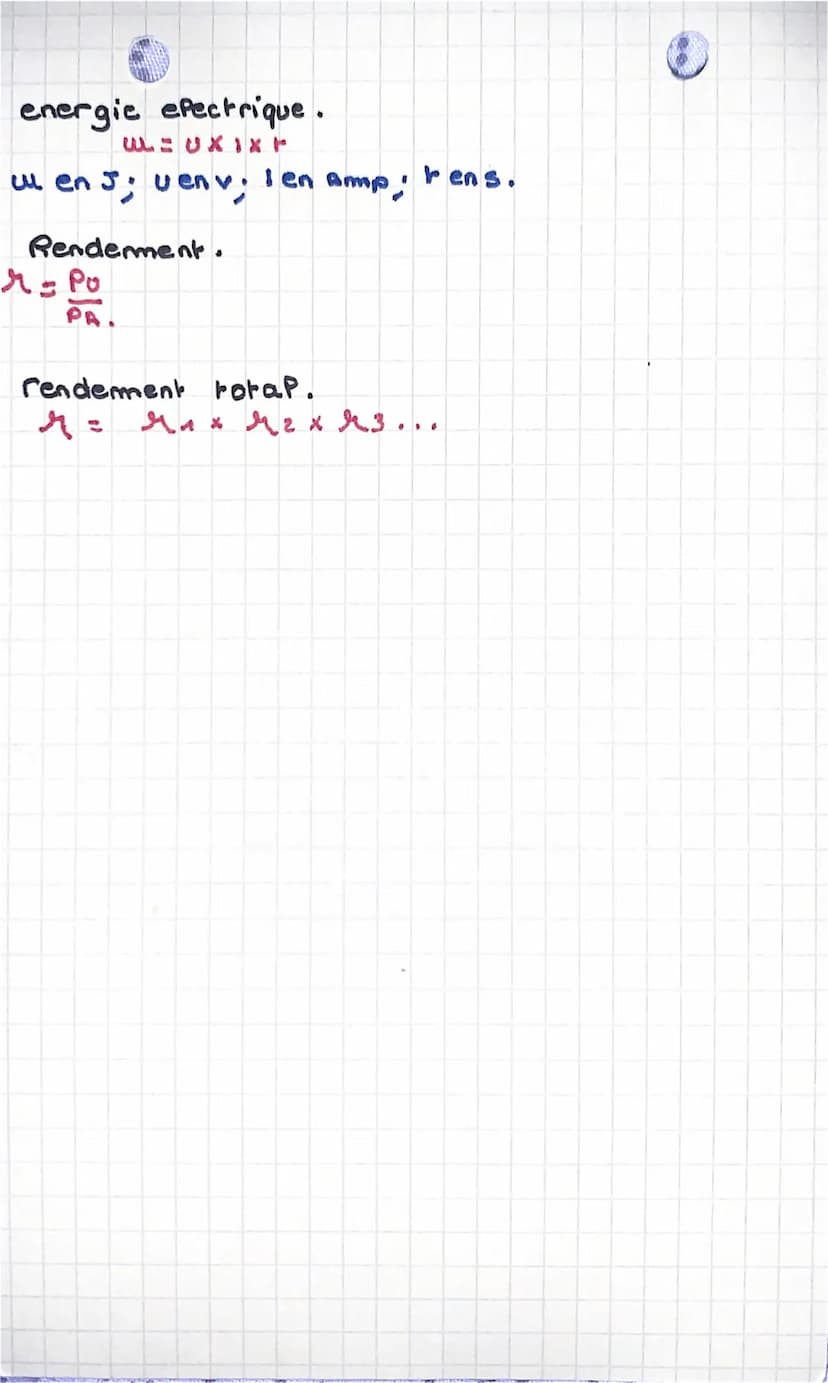 energie electrique.
W = U x I x t
W en J; U en V; I en Amp; t en s.
Rendement.
η = PU
PA.
rendement total.
η = η1 x η2 x η3...